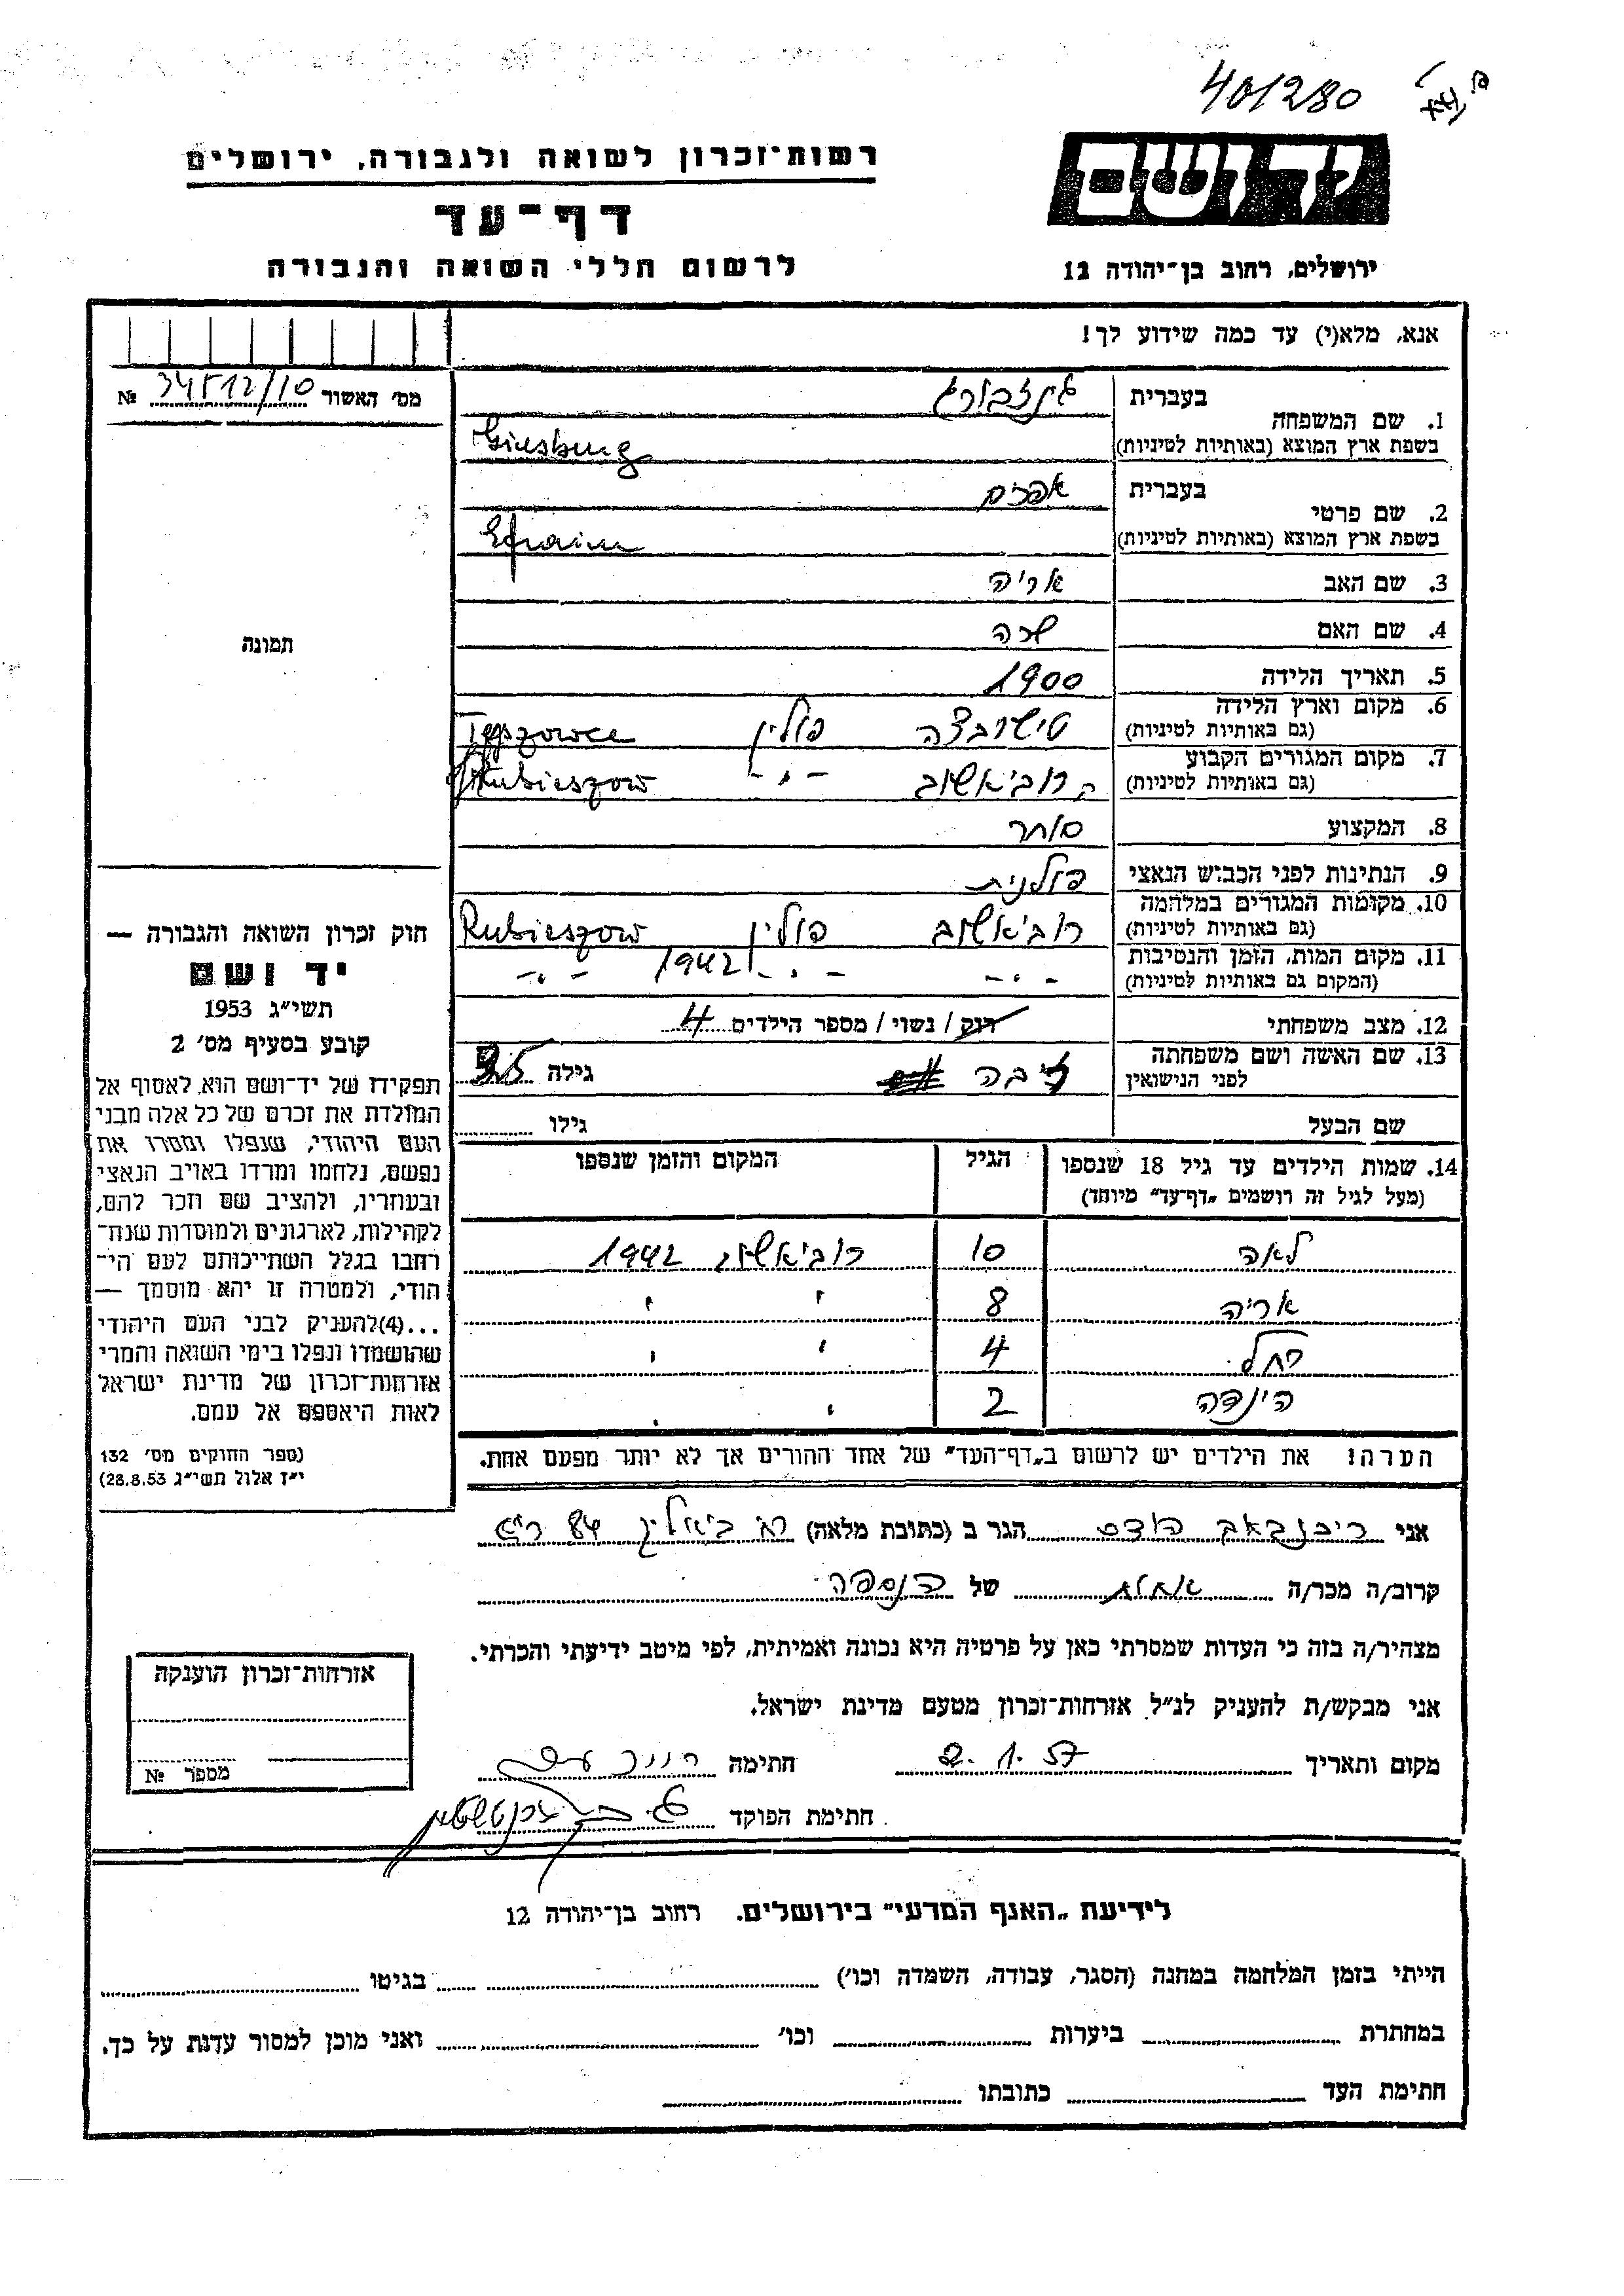 401280
רשות־זכרון לשואה ולגבורה, ירושלים
יד ושם
דף־עד
לרשום חללי השואה והגבורה
ירושלים, רחוב בן־יהודה 12
אנא, מלא(י) עד כמה שידוע לך!
מס' האשור 34512/10 №
תמונה
1. שם המשפחה בעברית גינזבורג
בשפת ארץ המוצא (באותיות לטיניות) Ginsburg
2. שם פרטי בעברית אפרים
בשפת ארץ המוצא (באותיות לטיניות) Efraim
3. שם האב אריה
4. שם האם שרה
5. תאריך הלידה 1900
6. מקום וארץ הלידה (גם באותיות לטיניות) טישובצה פולין Tyszowce
7. מקום המגורים הקבוע (גם באותיות לטיניות) הרוביאשוב -"- Hrubieszow
8. המקצוע סוחר
9. הנתינות לפני הכבוש הנאצי פולנית
10. מקומות המגורים במלחמה (גם באותיות לטיניות) רוביאשוב פולין Rubieszow
11. מקום המות, הזמן והנסיבות (המקום גם באותיות לטיניות) -"- -"- 1942 -"-
12. מצב משפחתי רוק / נשוי / מספר הילדים 4
13. שם האשה ושם משפחתה לפני הנישואין ליבה גילה 35
שם הבעל גילו
14. שמות הילדים עד גיל 18 שנספו הגיל המקום והזמן שנספו
(מעל לגיל זה רושמים „דף־עד" מיוחד)
לאה 10 רוביאשוב 1942
אריה 8 " "
רחל 4 " "
הינדה 2 " "
הערה! את הילדים יש לרשום ב„דף־העד" של אחד ההורים אך לא יותר מפעם אחת.
חוק זכרון השואה והגבורה —
יד ושם
תשי"ג 1953
קובע בסעיף מס' 2
תפקידו של יד־ושם הוא לאסוף אל
המולדת את זכרם של כל אלה מבני
העם היהודי, שנפלו ומסרו את
נפשם, נלחמו ומרדו באויב הנאצי
ובעוזריו, ולהציב שם וזכר להם,
לקהילות, לארגונים ולמוסדות שנח־
רבו בגלל השתייכותם לעם הי־
הודי, ולמטרה זו יהא מוסמך —
...(4)להעניק לבני העם היהודי
שהושמדו ונפלו בימי השואה והמרי
אזרחות־זכרון של מדינת ישראל
לאות היאספם אל עמם.
(ספר החוקים מס' 132
י"ז אלול תשי"ג 28.8.53)
אני הדס הגר ב (כתובת מלאה) רח' ביאליק 84 ר"ג
קרוב/ה מכר/ה אחות של הנספה
מצהיר/ה בזה כי העדות שמסרתי כאן על פרטיה היא נכונה ואמיתית, לפי מיטב ידיעתי והכרתי.
אני מבקש/ת להעניק לנ"ל אזרחות־זכרון מטעם מדינת ישראל.
מקום ותאריך 2.1.57 חתימה
חתימת הפוקד
אזרחות־זכרון הוענקה
מספר №
לידיעת „האגף המדעי" בירושלים. רחוב בן־יהודה 12
הייתי בזמן המלחמה במחנה (הסגר, עבודה, השמדה וכו') בגיטו
במחתרת ביערות וכו' ואני מוכן למסור עדות על כך.
חתימת העד כתובתו